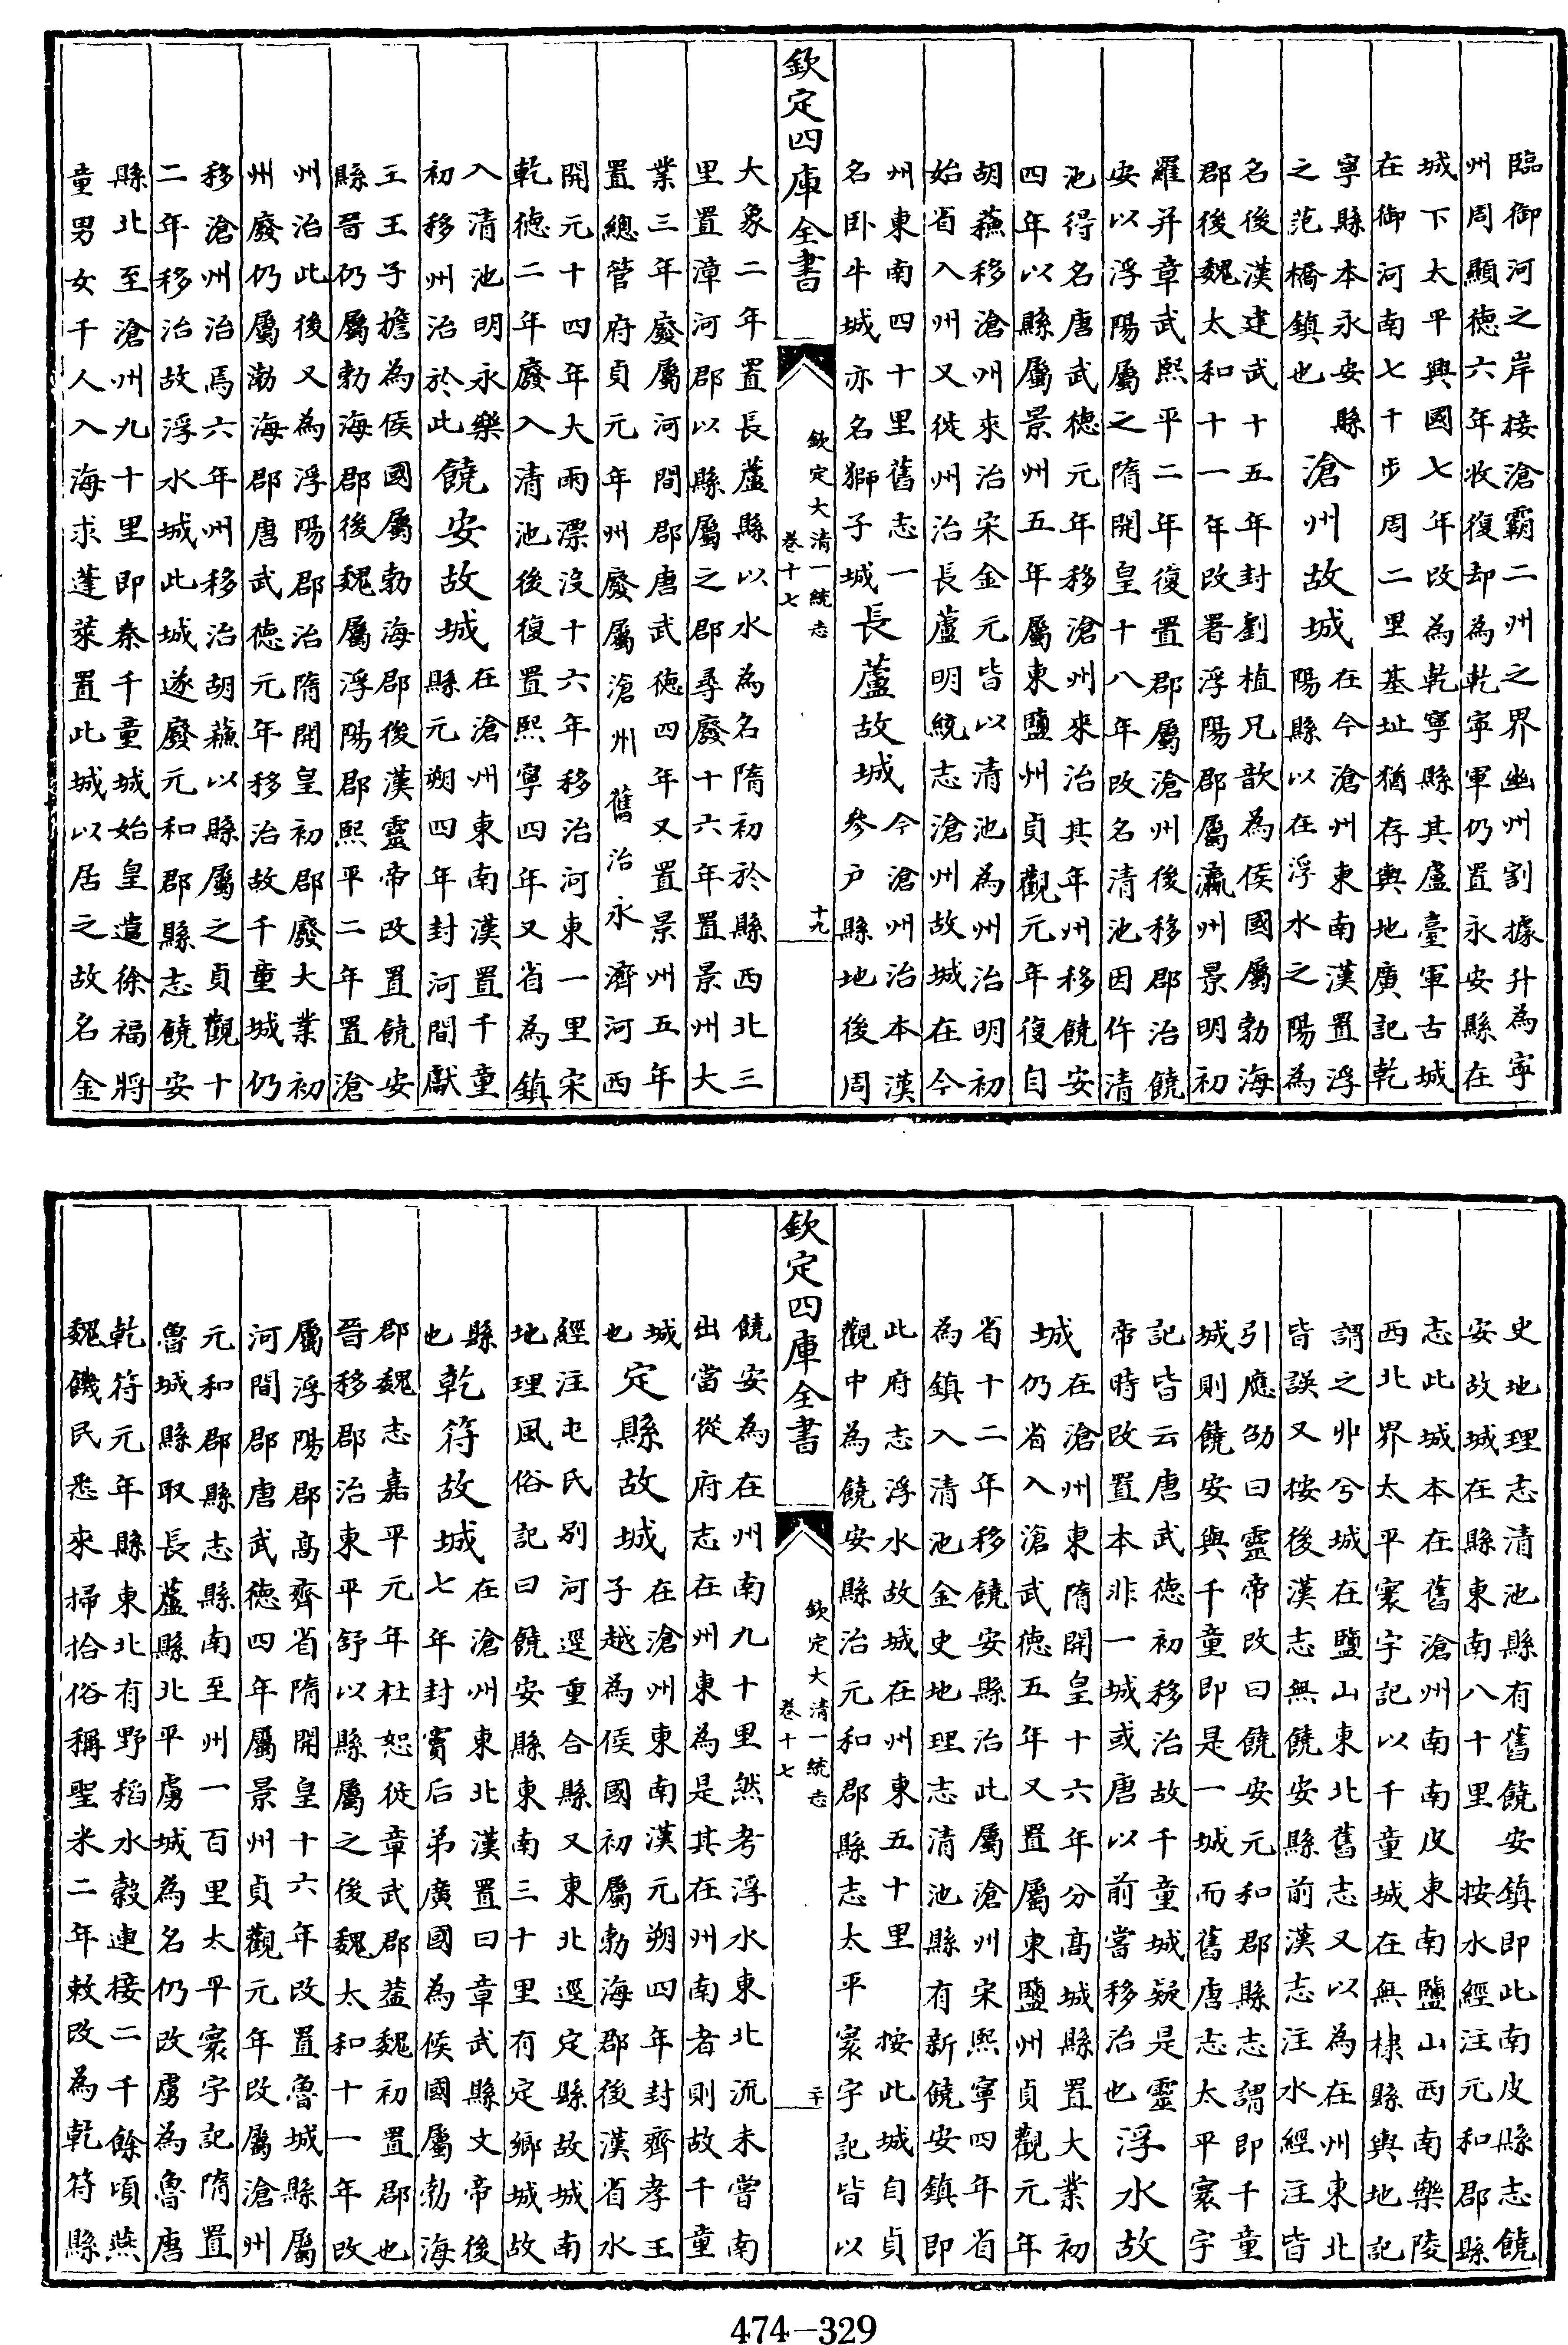 臨御河之岸接滄霸二州之界幽州割據升為寧
州周顯德六年收復却為乾寧軍仍置永安縣在
城下太平興國七年改為乾寧縣其盧臺軍古城
在御河南七十步周二里基址猶存輿地廣記乾
寧縣本永安縣
之范橋鎮也
滄州故城
在今滄州東南漢置浮
陽縣以在浮水之陽為
名後漢建武十五年封劉植兄歆為侯國屬勃海
郡後魏太和十一年改署浮陽郡屬瀛州景明初
羅并章武熙平二年復置郡屬滄州後移郡治饒
安以浮陽屬之隋開皇十八年改名清池因仵清
池得名唐武德元年移滄州來治其年州移饒安
四年以縣屬景州五年屬東鹽州貞觀元年復自
胡蘇移滄州來治宋金元皆以清池為州治明初
始省入州又徙州治長蘆明統志滄州故城在今
州東南四十里舊志一
名卧牛城亦名獅子城
長蘆故城
今滄州治本漢
參戶縣地後周
欽定四庫全書
欽定大清一統志
卷十七
十九
大象二年置長蘆縣以水為名隋初於縣西北三
里置漳河郡以縣屬之郡尋廢十六年置景州大
業三年廢屬河間郡唐武德四年又置景州五年
置總管府貞元年州廢屬滄州舊治永濟河西
開元十四年大雨漂沒十六年移治河東一里宋
乾德二年廢入清池後復置熙寧四年又省為鎮
入清池明永樂
初移州治於此
饒安故城
在滄州東南漢置千童
縣元朔四年封河間獻
王王子擔為侯國屬勃海郡後漢靈帝改置饒安
縣晉仍屬勃海郡後魏屬浮陽郡熙平二年置滄
州治此後又為浮陽郡治隋開皇初郡廢大業初
州廢仍屬渤海郡唐武德元年移治故千童城仍
移滄州治焉六年州移治胡蘇以縣屬之貞觀十
二年移治故浮水城此城遂廢元和郡縣志饒安
縣北至滄州九十里即秦千童城始皇遣徐福將
童男女千人入海求蓬萊置此城以居之故名金
史地理志清池縣有舊饒安鎮即此南皮縣志饒
安故城在縣東南八十里按水經注元和郡縣
志此城本在舊滄州南南皮東南鹽山西南樂陵
西北界太平寰宇記以千童城在無棣縣輿地記
謂之丱兮城在鹽山東北舊志又以為在州東北
皆誤又按後漢志無饒安縣前漢志注水經注皆
引應劭曰靈帝改曰饒安元和郡縣志謂即千童
城則饒安與千童即是一城而舊唐志太平寰宇
記皆云唐武德初移治故千童城疑是靈
帝時改置本非一城或唐以前當移治也
浮水故城
在滄州東隋開皇十六年分高城縣置大業初
仍省入滄武德五年又置屬東鹽州貞觀元年
省十二年移饒安縣治此屬滄州宋熙寧四年省
為鎮入清池金史地理志清池縣有新饒安鎮即
此府志浮水故城在州東五十里按此城自貞
觀中為饒安縣治元和郡縣志太平寰宇記皆以
欽定四庫全書
欽定大清一統志
卷十七
二十
饒安為在州南九十里然考浮水東北流未嘗南
出當從府志在州東為是其在州南者則故千童
城
也
定縣故城
在滄州東南漢元朔四年封齊孝王
子越為侯國初屬勃海郡後漢省水
經注屯氏別河逕重合縣又東北逕定縣故城南
地理風俗記曰饒安縣東南三十里有定鄉城故
縣
也
乾符故城
在滄州東北漢置曰章武縣文帝後
七年封竇后弟廣國為侯國屬勃海
郡魏志嘉平元年杜恕徙章武郡葢魏初置郡也
晉移郡治東平舒以縣屬之後魏太和十一年改
屬浮陽郡高齊省隋開皇十六年改置魯城縣屬
河間郡唐武德四年屬景州貞觀元年改屬滄州
元和郡縣志縣南至州一百里太平寰宇記隋置
魯城縣取長蘆縣北平虜城為名仍改虜為魯唐
乾符元年縣東北有野稻水穀連接二千餘頃燕
魏饑民悉來掃拾俗稱聖米二年敕改為乾符縣
474—329